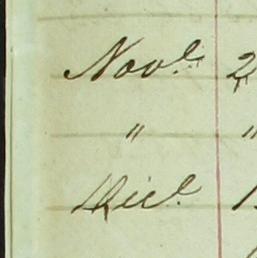 Novr. 2
" "
Decr. 1